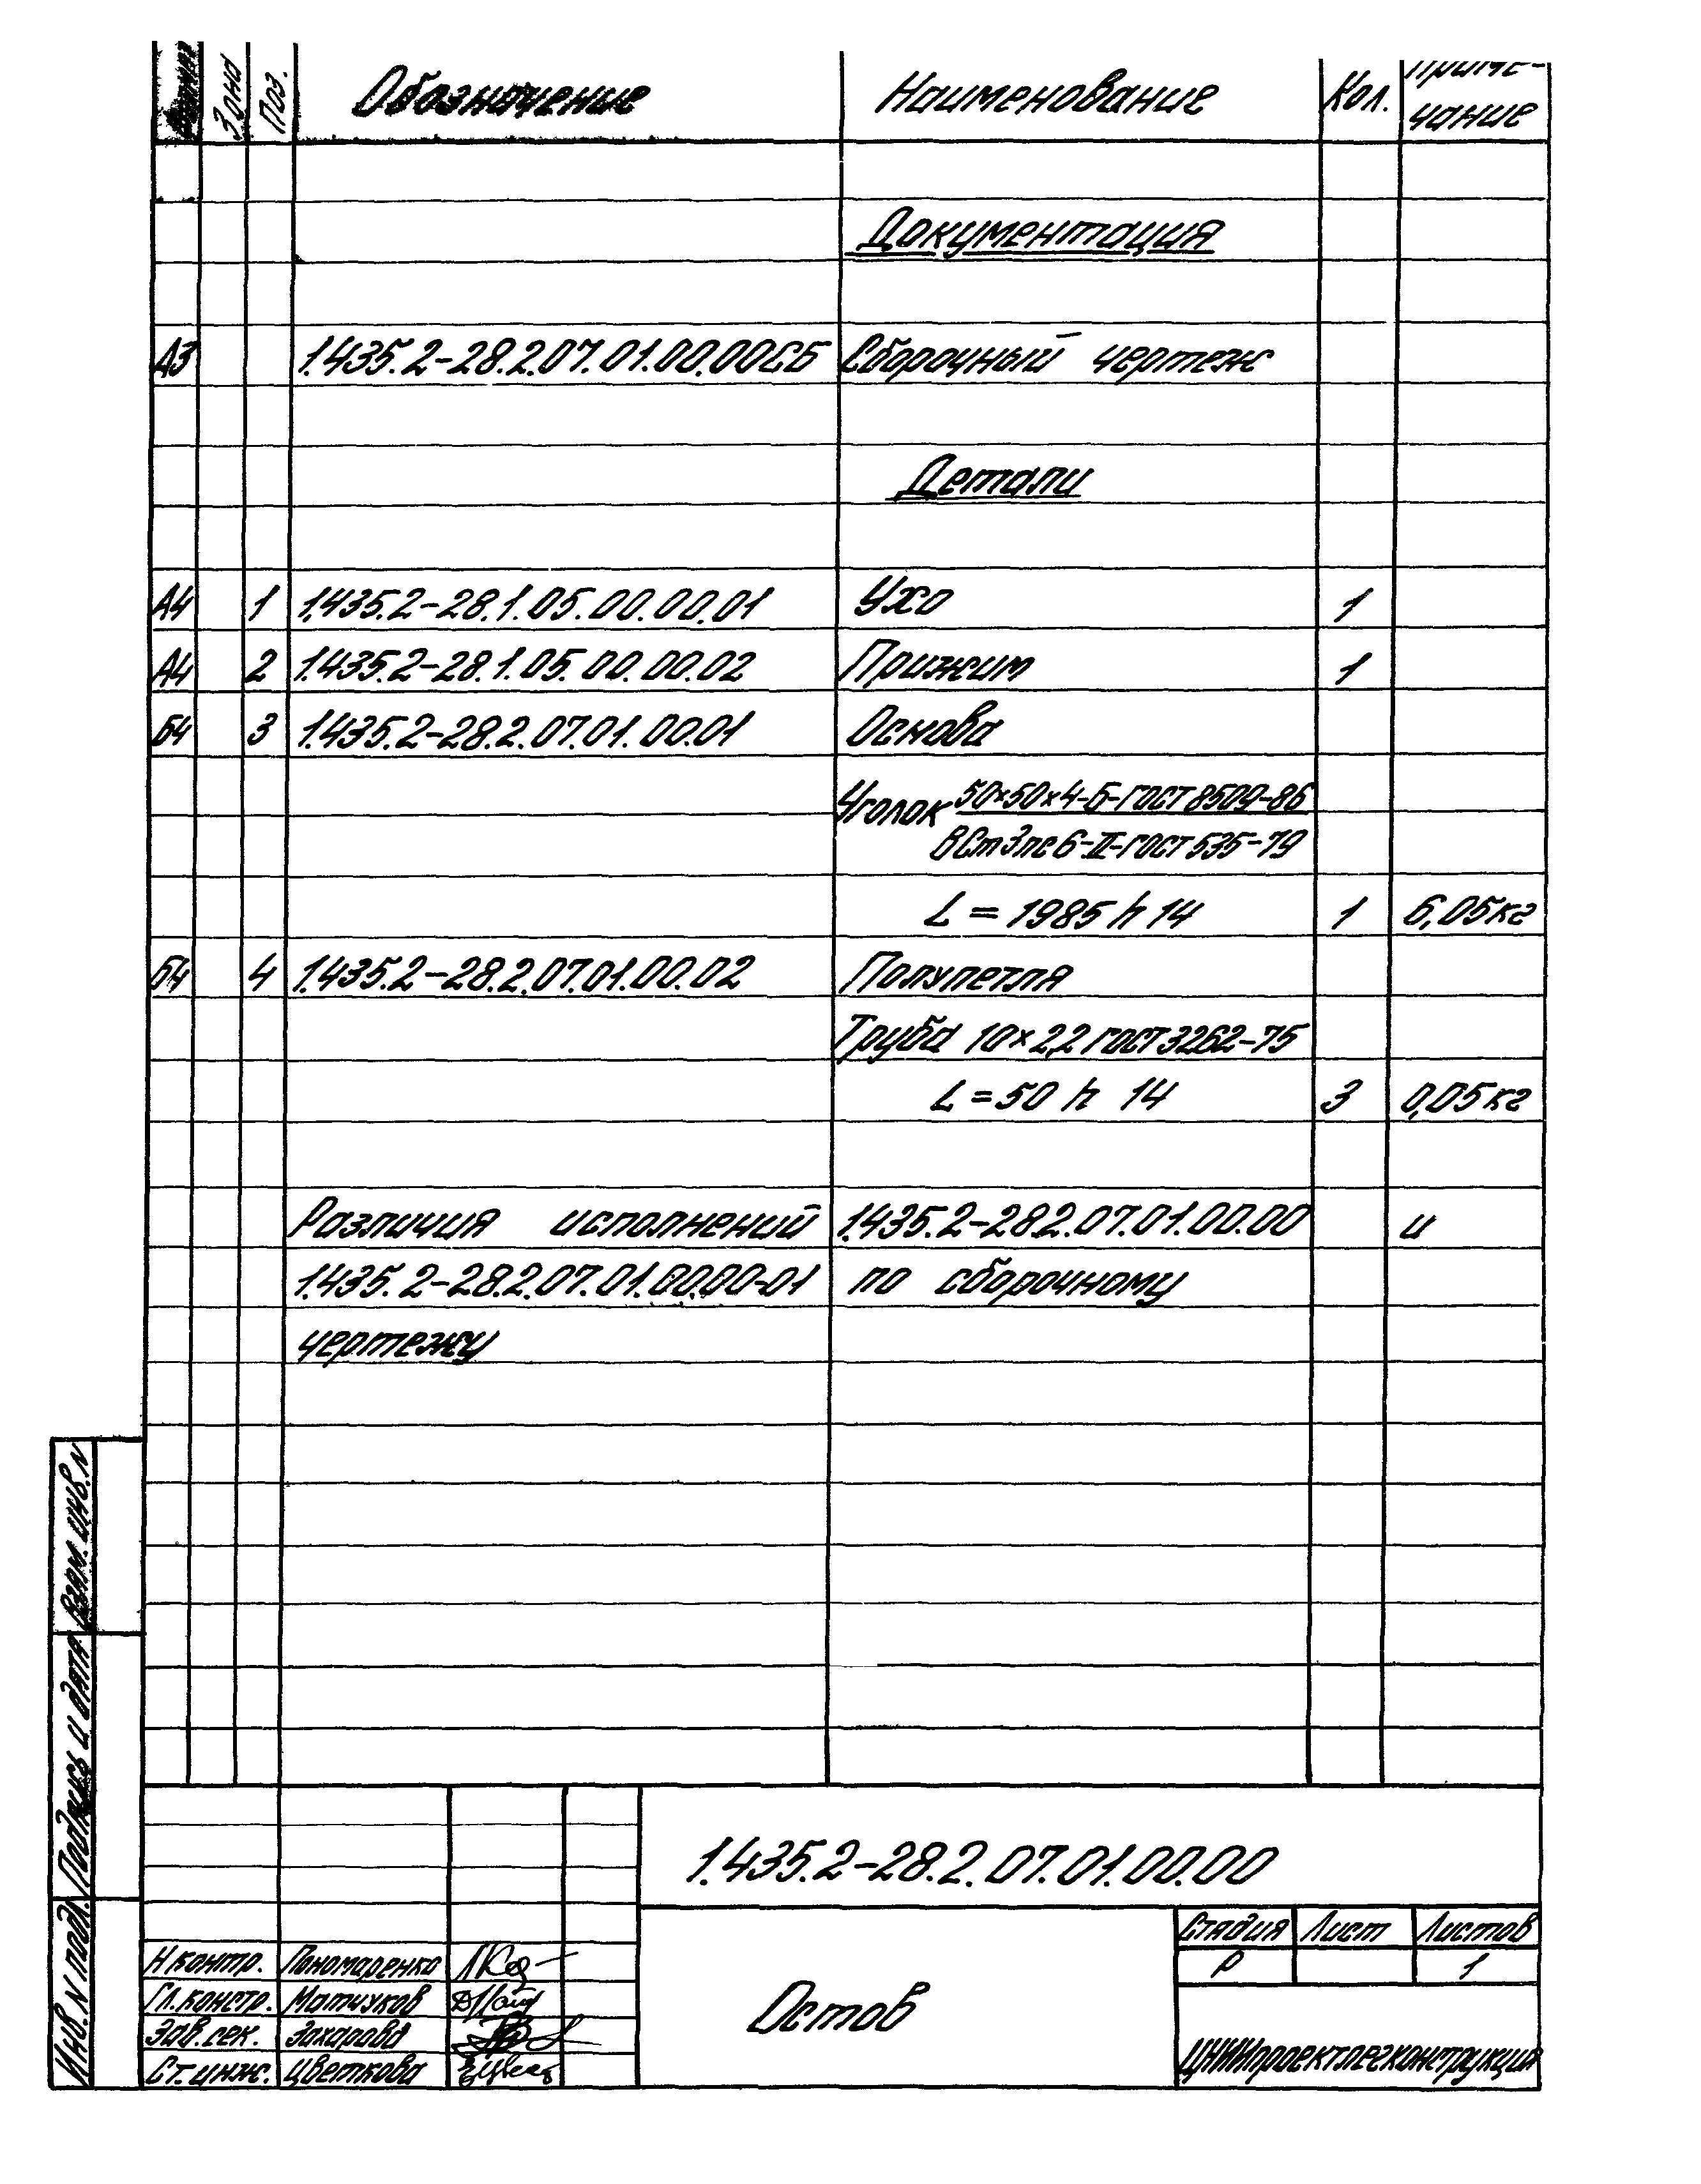 Формат Зона Поз. Обозначение Наименование Кол. Приме-
чание
Документация
А3 1.435.2-28.2.07.01.00.00СБ Сборочный чертеж
Детали
А4 1 1.435.2-28.1.05.00.00.01 Ухо 1
А4 2 1.435.2-28.1.05.00.00.02 Прижим 1
Б4 3 1.435.2-28.2.07.01.00.01 Основа
Уголок 50×50×4-Б-ГОСТ 8509-86
ВСт3пс6-II-ГОСТ 535-79
L = 1985 h 14 1 6,05 кг
Б4 4 1.435.2-28.2.07.01.00.02 Полупетля
Труба 10×2,2 ГОСТ 3262-75
L = 50 h 14 3 0,05 кг
Различия исполнений 1.435.2-28.2.07.01.00.00 и
1.435.2-28.2.07.01.00.00-01 по сборочному
чертежу
Взам. инв. N
Подпись и дата
Инв. N подл.
1.435.2-28.2.07.01.00.00
Стадия Лист Листов
Р 1
Н контр. Пономаренко
Гл. констр. Матчуков
Зав. сек. Захарова
Ст. инж. Цветкова
Остов
ЦНИИпроектлегконструкция